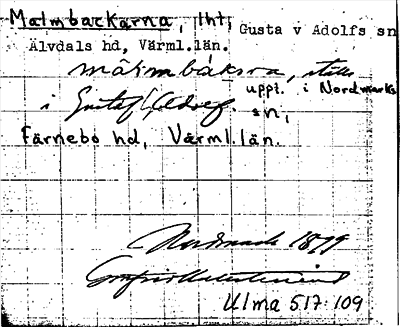 Malmbackarna, lht, Gusta v Adolfs sn
Älvdals hd, Värml.län.
målmbåkɐna, ställe
uppt. i Nordmarks
i Gustaf Adolf. sn,
Färnebo hd, Värml.län.
Nordmark 1899
Ulma 517:109